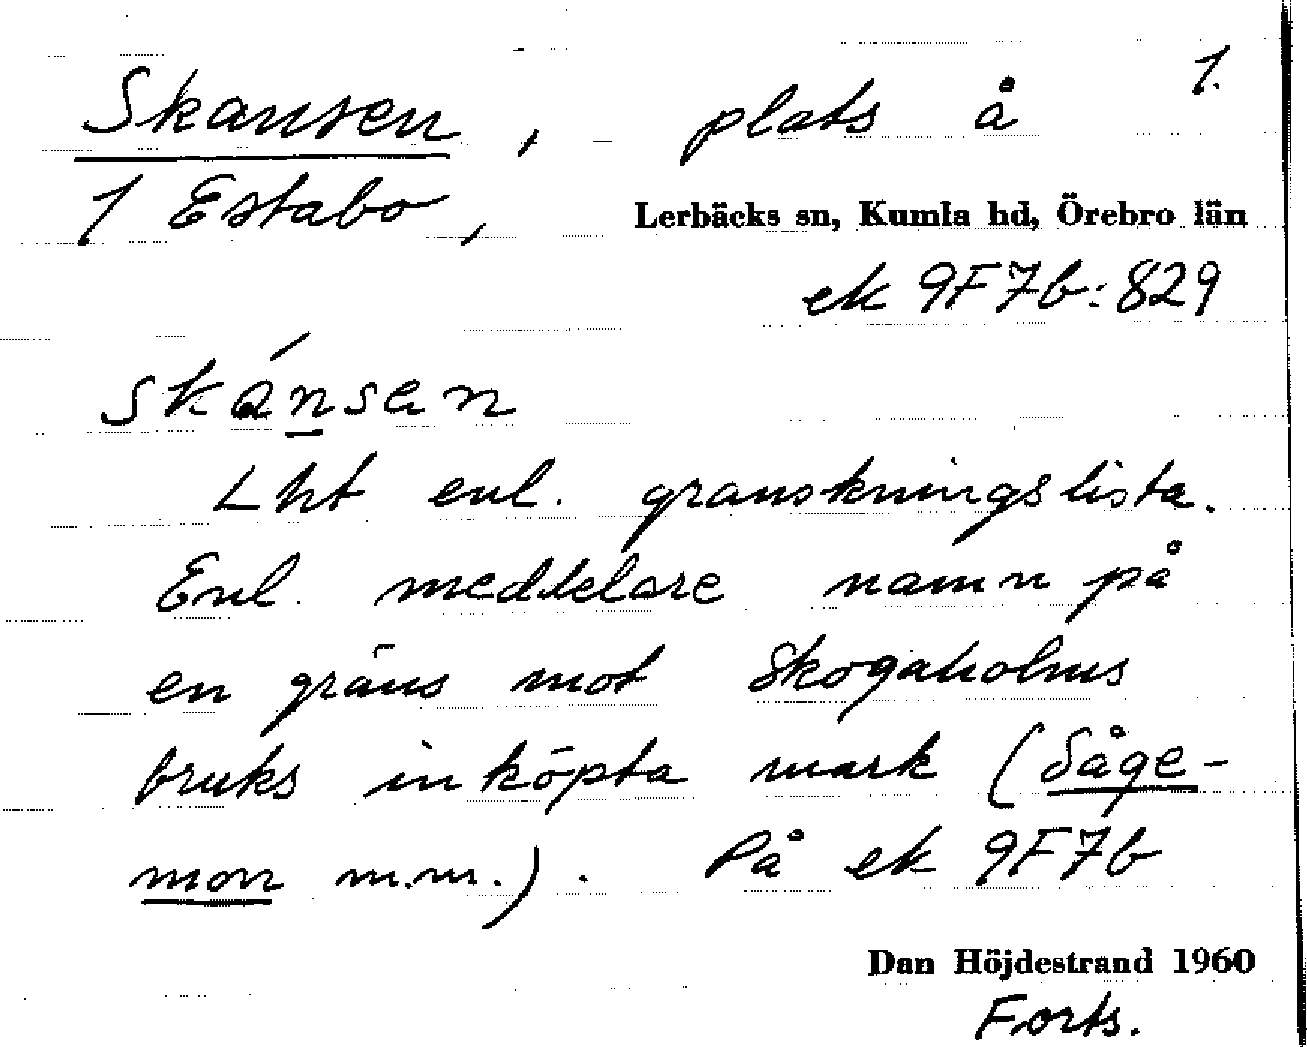 1.
Skansen, plats å
1 Estabo, Lerbäcks sn, Kumla hd, Örebro län
ek 9F7b:829
skánsan
Lht enl. granskningslista.
Enl. meddelare namn på
en gräns mot Skogaholms
bruks inköpta mark (Såge-
mon m.m.). På ek 9F7b
Dan Höjdestrand 1960
Forts.